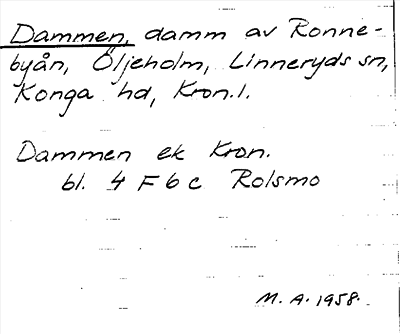 Dammen, damm av Ronne-
byån, Öljeholm, Linneryds sn,
Konga hd, Kron.l.
Dammen ek Kron.
bl. 4 F 6 c Rolsmo
M. A. 1958.